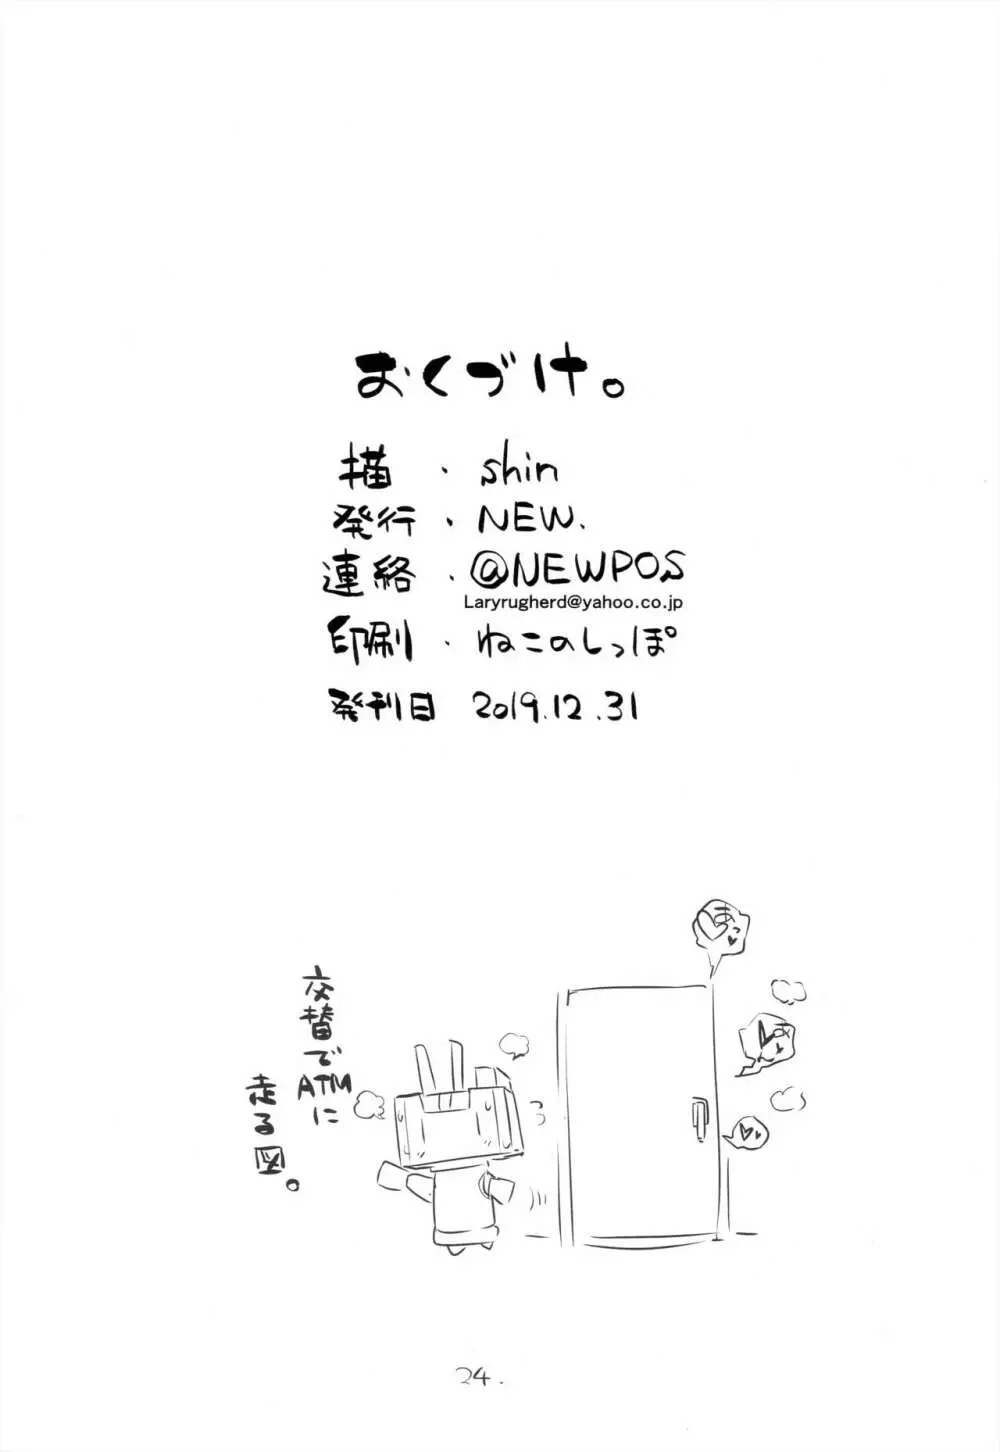 おくづけ。
描・shin
発行・NEW.
連絡・@NEWPOS
Laryrugherd@yahoo.co.jp
印刷・ねこのしっぽ
発刊日 2019.12.31
交替でATMに
走る図。
あっ♥
24.